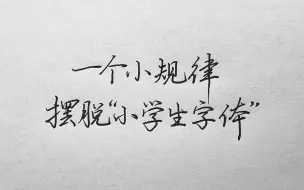 一个小规律
摆脱“小学生字体”